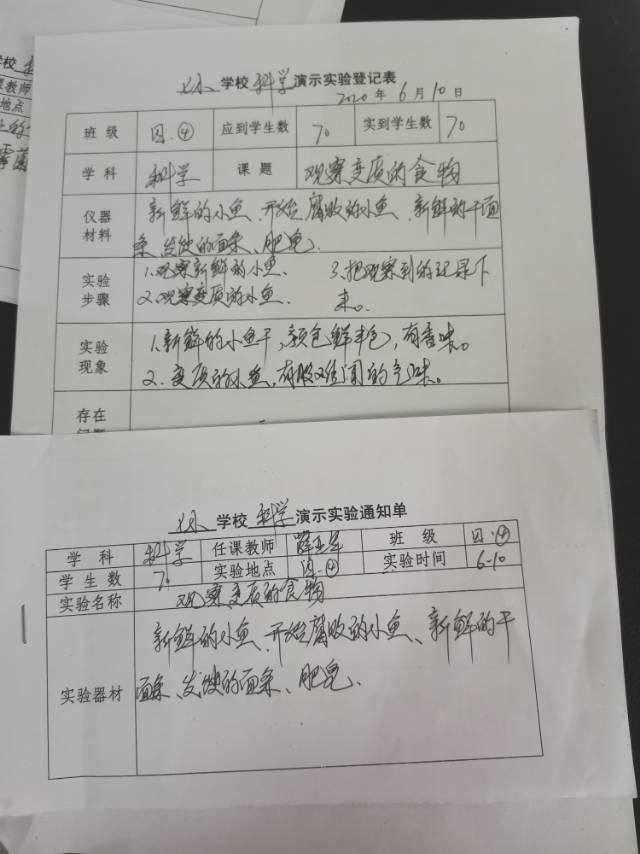 学校 科学 演示实验登记表
2020 年 6 月 10 日
班级 四.④ 应到学生数 70 实到学生数 70
学科 科学 课题 观察变质的食物
仪器材料 新鲜的小鱼、开始腐败的小鱼、新鲜的干面
条、发馊的面条、肥皂、
实验步骤 1.观察新鲜的小鱼、 3.把观察到的记录下
2.观察变质的小鱼、 来。
实验现象 1.新鲜的小鱼干,颜色鲜丰色,有香味。
2.变质的小鱼,有股难闻的气味。
存在
学校 科学 演示实验通知单
学科 科学 任课教师 班级 四.④
学生数 70 实验地点 四.④ 实验时间 6-10
实验名称 观察变质的食物
实验器材 新鲜的小鱼、开始腐败的小鱼、新鲜的干
面条、发馊的面条、肥皂、
校
教师
地点